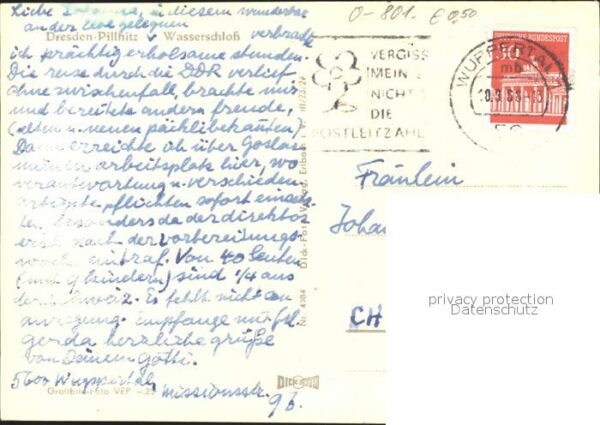 Liebe Johanna, in diesem wunderbar
an der Elbe gelegenen
Dresden-Pillnitz Wasserschloß
verbrachte
ich prächtig erholsame stunden.
Die reise durch die DDR verlief
ohne zwischenfall, brachte mir
und bereitete andern freude,
(alten u. neuen päcklibekannten).
Dann erreichte ich über Goslar
meinen arbeitsplatz hier, wo
verantwortung u. verschieden
pflichten sofort
besonders da der direktor
erst nach der vorbereitungs
woche eintraf. Von 40 Leuten
(mit 9 kindern) sind 1/4 aus
der Schweiz. Es fehlt nicht an
anregung. Empfange mit
gerda herzliche grüße
von Deinem Götti.
5600 Wuppertal,
Missionsstr.
9 b.
Großbild-Foto VEP - 25
Nr. 4384 Dick-Foto-Verlag, Erlbach III/25/24
DICK FOTO
0-801. € 0,50
VERGISS
MEIN
NICHT
DIE
POSTLEITZAHL
WUPPERTAL
mb
56
DEUTSCHE BUNDESPOST
30
Fräulein
Johan
CH
privacy protection
Datenschutz